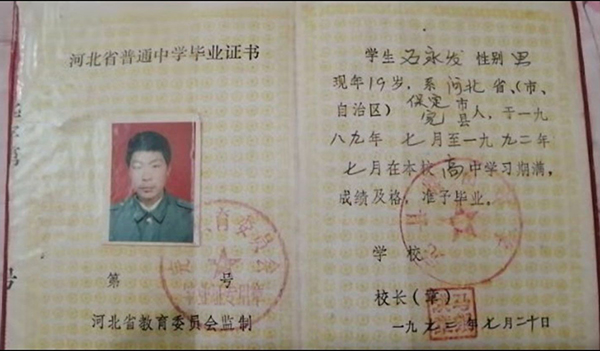 河北省普通中学毕业证书
第 号
河北省教育委员会监制
学生 石永发 性别 男
现年19岁，系河北省、(市、
自治区) 保定市
完县人，于一九
八九年 七月至一九九二年
七月在本校高中学习期满，
成绩及格，准予毕业。
学校
校长(章)
一九九二年七月二十日